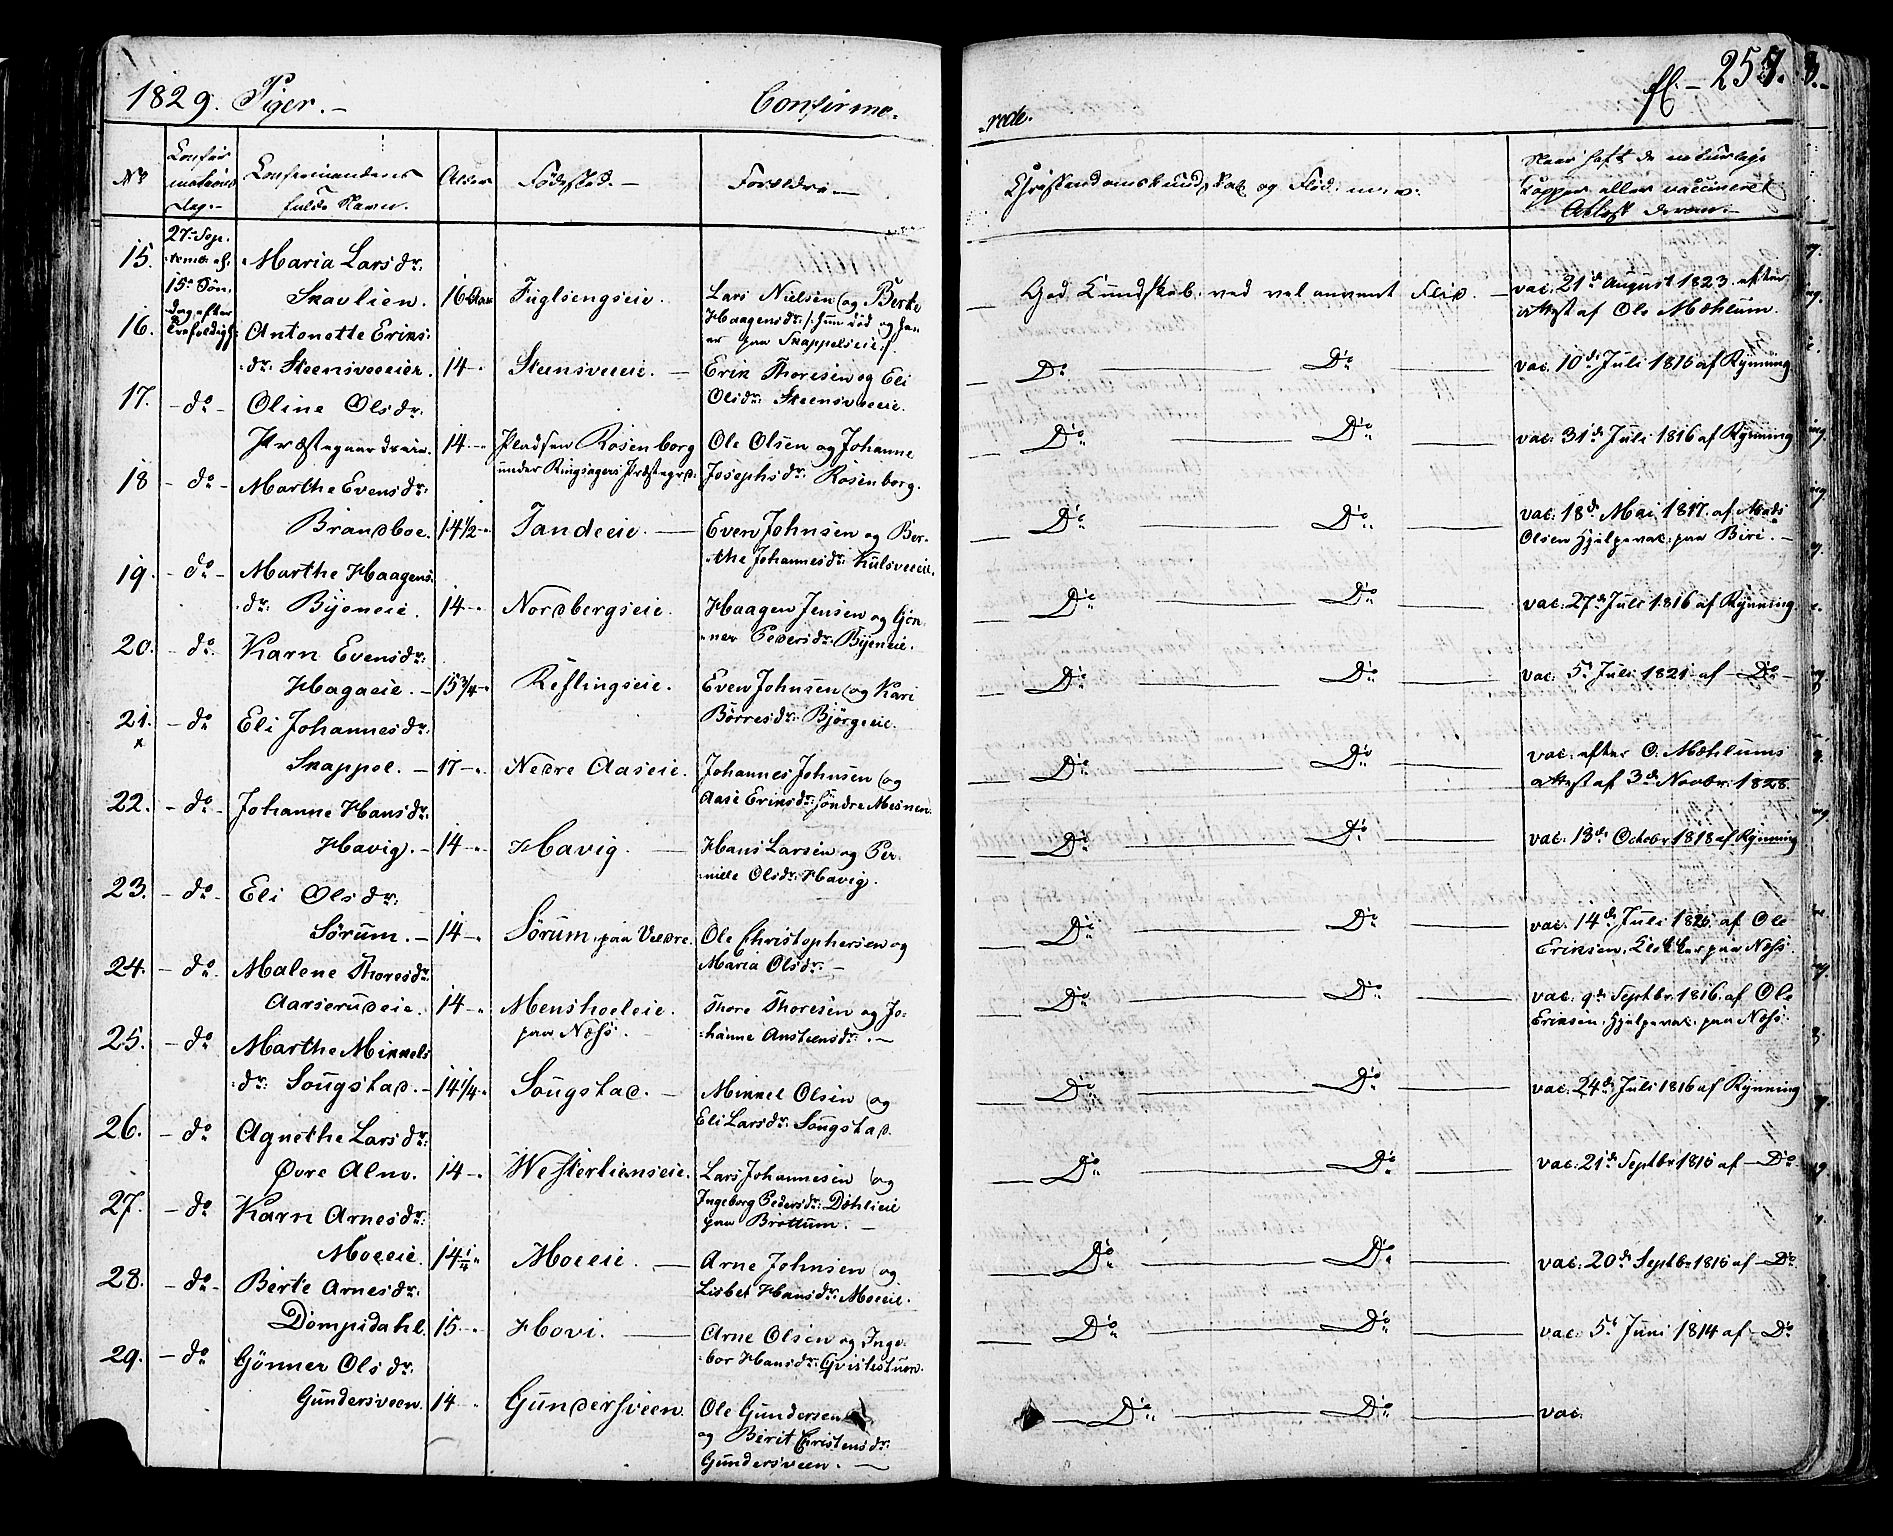 1829. Piger.- Confirme-
-rede. fl. - 257.
No Confir mations Dag.- Confirmandens fulde Navn. Alder Fødested.- Forældre.-
Christendomskundskab og Flid m. v. Naar haft de naturlige Kopper eller vaccineret Attest derom.-
15. 27. Sep- Maria Larsdr:
15de Søn- Skavlien. 16 Aar Fuglsengseie. Lars Nielsen og Berte
Haagensdr: /: hun død og han
er paa Skappelseie :/.
God Kundskab ved vel anvendt Flid. - vac. 21de August 1823. efter
Attest af Ole Mæhlum.
dag efter
Trefoldigh:
16. Antonette Eriks:
dr: Steensveeeier. 14-" Steensveeeie. - Erik Thoresen og Eli
Olsdr: Steensveeie.
Do Do vac. 10de Juli 1816 af Rynning
17. - do - Oline Olsdr:
Præstegaardseie. 14-" Pladsen Rosenborg Ole Olsen og Johanne
under Ringsagers Præstegrd: Josephsdr: Rosenborg.
Do Do vac. 31de Juli 1816 af Rynning
18 - do - Marthe Evensdr:
Brandboe. 14½-" Tandeeie. - Even Johnsen og Ber-
-the Johannesdr: Kulsveeie.
Do Do vac. 18de Mai 1817. af Mads
Olsen Hjelpevac: paa Biri. -
19. - do - Marthe Haagens:
dr: Byeneie. 14-" Nordbergseie. Haagen Jensen og Gön-
-ner Pedersdr: Byeneie.
Do Do vac. 27de Juli 1816 af Rynning
20. - do Karn Evensdr:
Hagaeie. - 15¾-" Reflingseie. Even Johnsen og Kari
Börresdr: Bjørgeeie.
Do Do vac. 5te Juli 1821 af - Do -
21. - do Eli Johannesdr:
x
Skappel. - 17-" Nedre Aaseie. Johannes Johnsen og
Aase Eriksdr: Söndre Mesnen.
Do Do vac. efter O. Mæhlums
Attest af 3de Novbr. 1828.
22. - do - Johanne Hansdr:
Havig. - 14-" Havig. Hans Larsen og Per-
nille Olsdr: Havig.
Do Do vac. 13de Octobr 1818 af Rynning
23. - do - Eli Olsdr:
Sörum. - 14-" Sörum, paa Veldre. Ole Christophersen og
Maria Olsdr: -
Do Do vac. 14de Juli 1826. af Ole
Eriksen, Klokker paa Næss.
24. - do. Malene Thoresdr:
Aarserudeie. 14-" Menshoeleie. Thore Thoresen og Jo-
paa Næss. -hanne Anstensdr: . -
Do Do vac. 9de Septbr 1816. af Ole
Eriksen, Hjelpevac. paa Næss.
25. - do Marthe Mikkels
dr: Sougstad. - 14¼-" Sougstad. - Mikkel Olsen og
Eli Larsdr: Sougstad.
Do Do vac. 24de Juli 1816 af Rynning
26. - do Agnethe Larsdr:
Øvre Alm. 14-" Westerlienseie. Lars Johannesen og
Ingeborg Pedersdr: Döhlieie
paa Brottum. -
Do Do vac. 21de Septbr 1815 af - Do
27. - do Karn Arnesdr:
Moeeie. 14¼" Moeeie. - Arne Johnsen og
Lisbet Hansdr: Moeeie.
Do Do vac. 20de Septbr 1816 af - Do
28. - do - Berte Arnesdr:
Dompidahl. 15-" Hovi. Arne Olsen og Inge-
-bor Hansdr: Qvistetuen.
Do Do vac. 5te Juni 1814 af - Do
29. - do Gönner Olsdr:
Gundersveen. 14 Gundersveen. Ole Gundersen
og Birit Christensdr:
Gundersveen. -
Do Do vac.